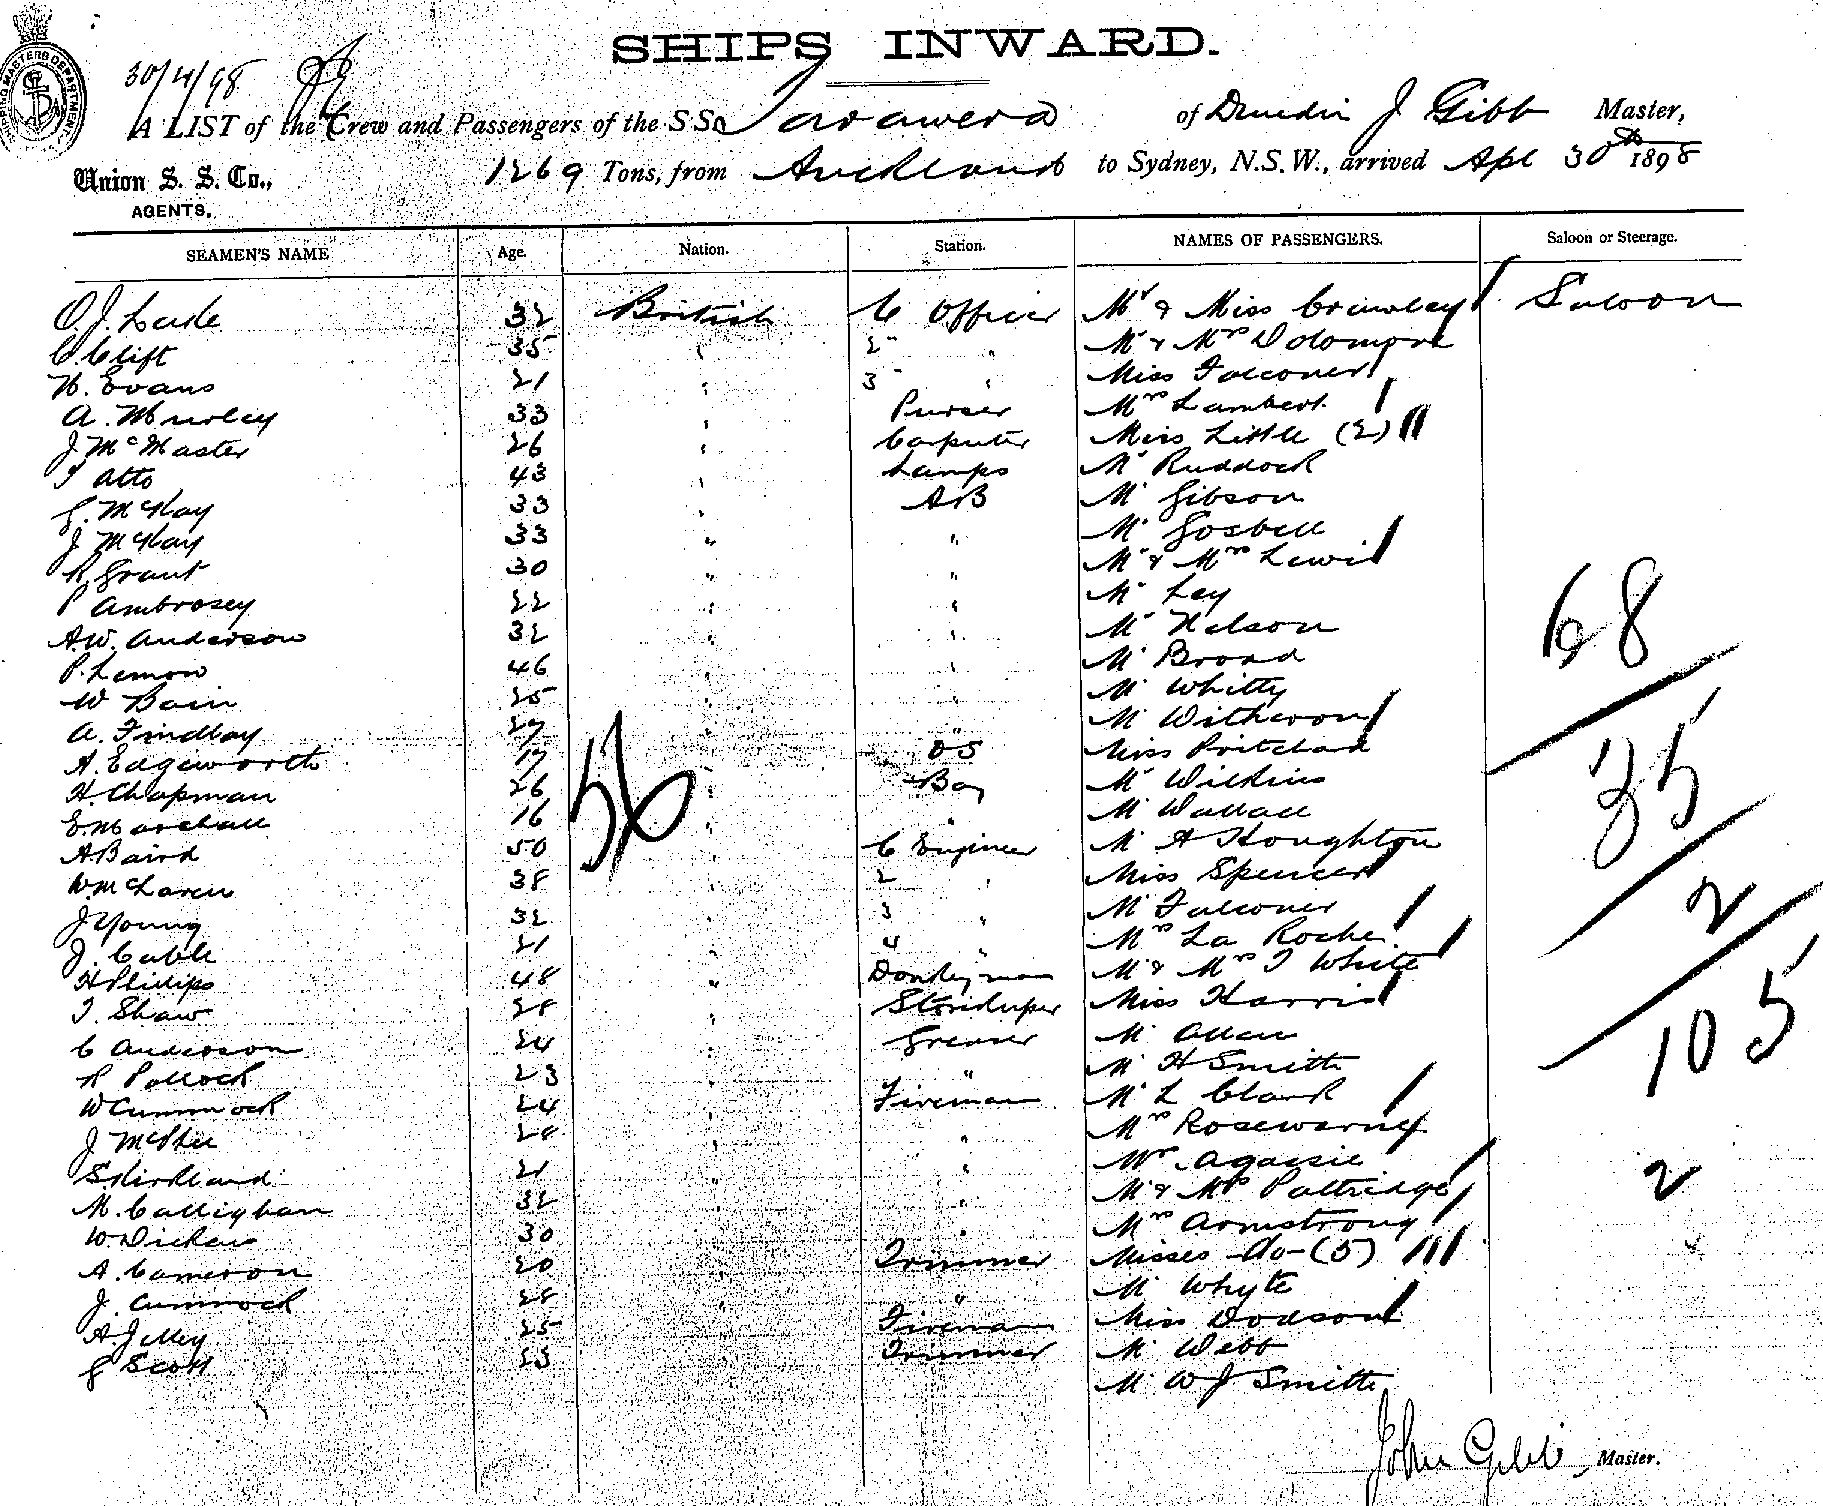 SHIPS INWARD.
30/4/98
A LIST of the Crew and Passengers of the S S Tarawera of Dunedin J Gibb Master,
Union S. S. Co., 1269 Tons, from Auckland to Sydney, N.S.W., arrived Apl 30th 1898
AGENTS.
SEAMEN'S NAME Age. Nation. Station. NAMES OF PASSENGERS. Saloon or Steerage.
O. J. 32 British C Officer Mr & Miss Crawley Saloon
C Clift 35 " 2nd " Mr & Mrs Dolomore
H. Evans 21 " 3rd " Miss Falconer
A. Murley 33 " Purser Mrs Lambert
J McMaster 26 " Carpenter Miss Little (2)
T Atto 43 " Lamps Mr Ruddock
G. McKay 33 " AB Mr Gibson
J McKay 33 " " Mr Gosbell
R Grant 30 " " Mr & Mrs Lewis
P Ambrosey 22 " " Mr Ley
A.W. Anderson 32 " " Mr Nelson
P. Lemon 46 " " Mr Broad
W Bain 25 " " Mr Whitty
A. Findlay 27 " " Mr Witheron
A. Edgeworth 17 " OS Miss Pritchard
H. Chapman 26 " Boy Mr Wilkins
E. Marshall 16 " " Mr Wallace
A Baird 50 " C Engineer Mr A Houghton
W McLaren 38 " 2 " Miss Spencer
J Young 32 " 3 " Mr Falconer
J. Cable 21 " 4 " Mrs La Roche
H Phillips 48 " Donkeyman Mr & Mrs T White
T. Shaw 28 " Storekeeper Miss Harris
C Anderson 24 " Greaser Mr Allen
R Pollock 23 " " Mr H Smith
W Cummock 24 " Fireman Mr L Clark
J McPhee 28 " " Mrs Rosewarne
S Kirkland 21 " " Mr Agassie
M. Callighan 32 " " Mr & Mrs Paltridge
W. Dickens 30 " " Mrs Armstrong
A. Cameron 20 " Trimmer Misses do (5)
J. Cummock 28 " " Mr Whyte
A Jelley 25 Fireman Miss Dodson
G Scott 23 Trimmer Mr Webb
Mr W J Smith
56
68
35
2
105
2
John Gibb, Master.